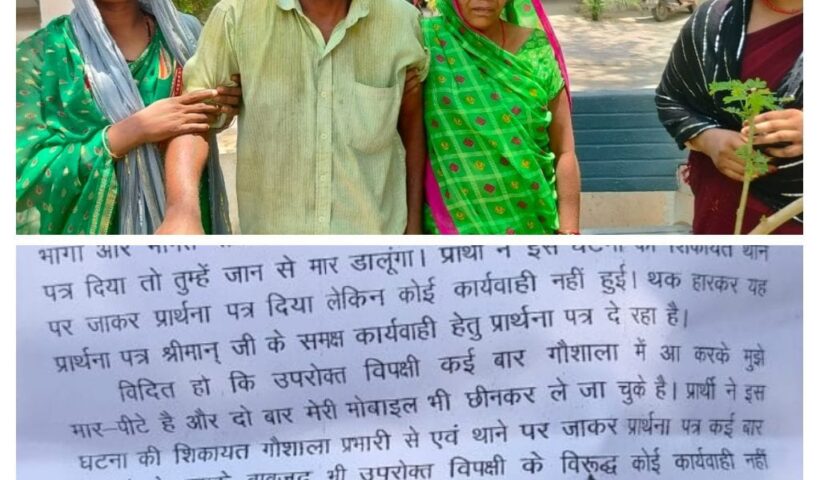 भागा और
जान से मार डालूंगा। प्रार्थी ने इस घटना की शिकायत थाने
पत्र दिया तो तुम्हें
पर जाकर प्रार्थना पत्र दिया लेकिन कोई कार्यवाही नहीं हुई। थक हारकर यह
प्रार्थना पत्र श्रीमान् जी के समक्ष कार्यवाही हेतु प्रार्थना पत्र दे रहा है।
विदित हो कि उपरोक्त विपक्षी कई बार गौशाला में आ करके मुझे
मार-पीटे है और दो बार मेरी मोबाइल भी छीनकर ले जा चुके है। प्रार्थी ने इस
घटना की शिकायत गौशाला प्रभारी से एवं थाने पर जाकर प्रार्थना पत्र कई बार
भी उपरोक्त विपक्षी के विरूद्ध कोई कार्यवाही नहीं